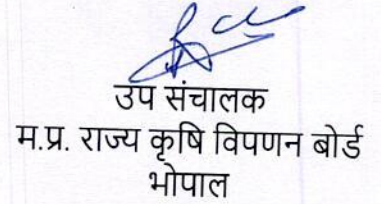 उप संचालक
म.प्र. राज्य कृषि विपणन बोर्ड
भोपाल